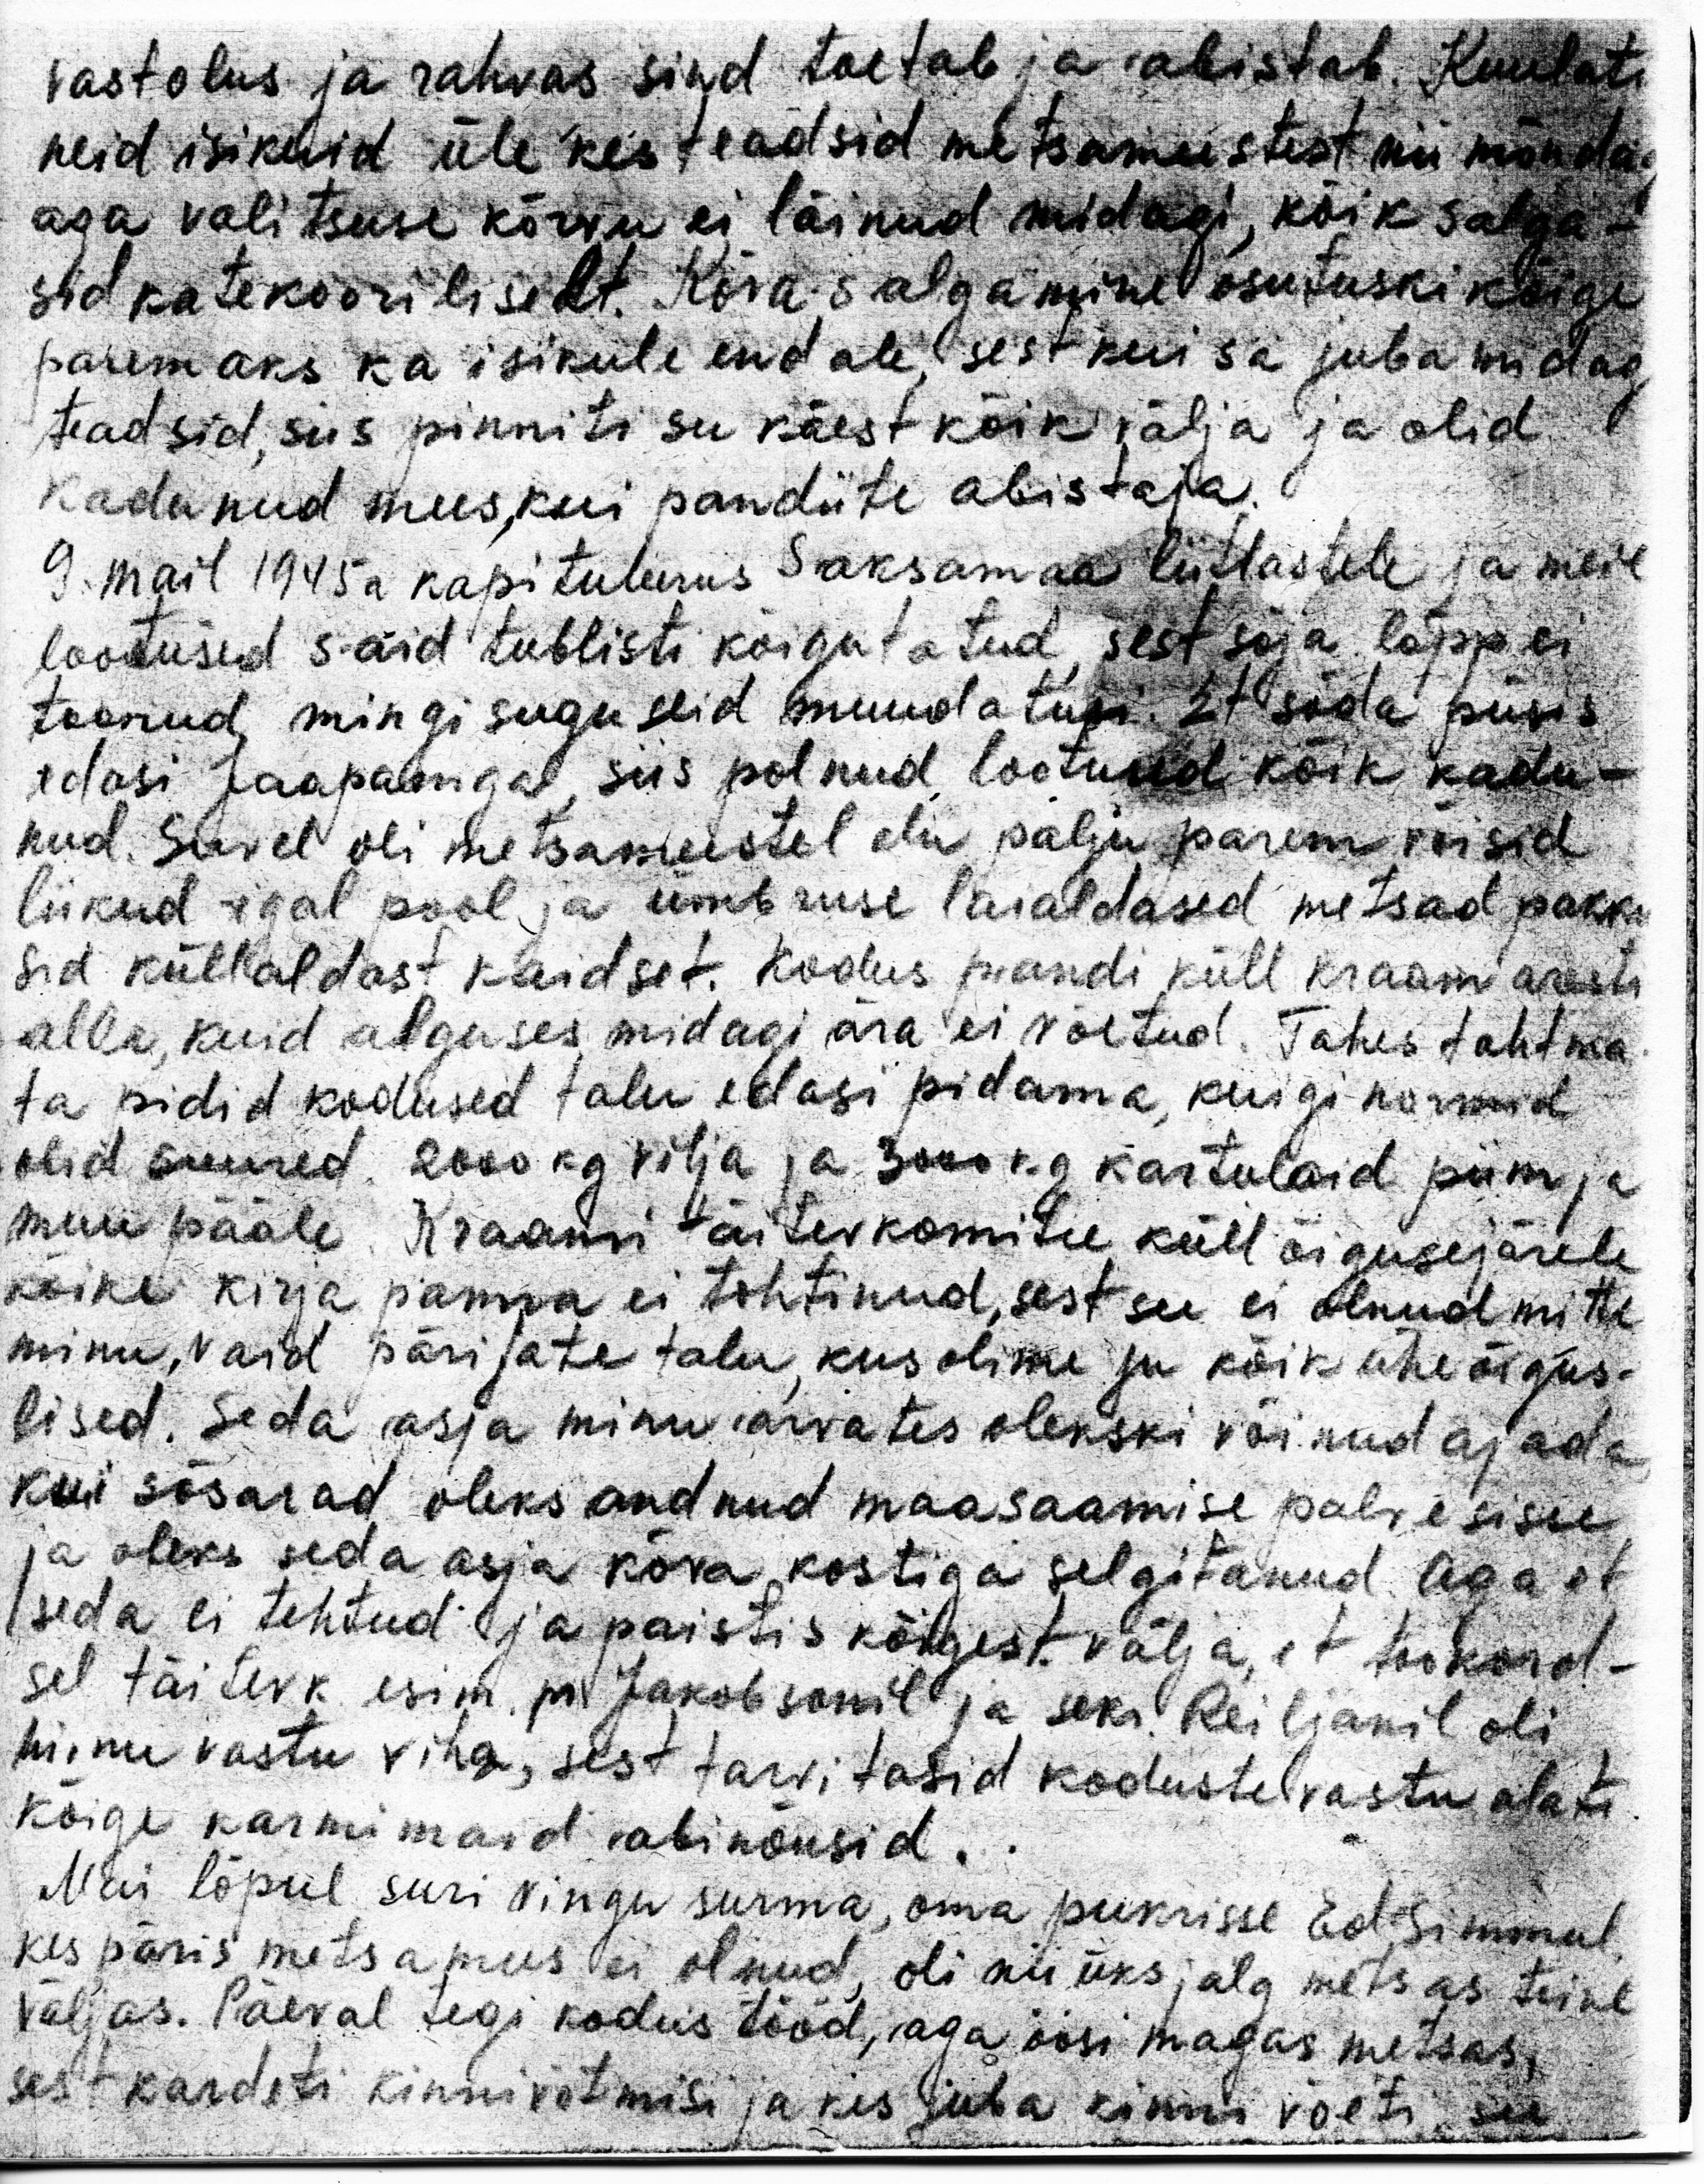 vastolus ja rahvas sind toetab ja abistab. Kuulati
neid isikuid üle kes teadsid metsameestest nii mõndag
aga valitsuse kõrvu ei läinud midagi, kõik salga-
sid katekooriliselt. Kõva salgamine osutuski kõige
paremaks ka isikule endale, sest kui sa juba midag
teadsid, siis pinniti su käest kõik välja ja olid
kadunud mees, kui pandiite abistaja.
9. mail 1945a kapituleerus Saksamaa liitlastele ja meie
lootused said tublisti kõigutatud, sest sõja lõpp ei
toonud mingisuguseid muudatusi. Et sõda püsis
edasi Jaapaniga, siis polnud lootused kõik kadu-
nud. Suvel oli metsameestel elu palju parem, võisid
liikud igal pool ja ümbruse laialdased metsad pakku
sid küllaldast kaidset. Kodus pandi küll kraam aresti
alla, kuid alguses midagi ära ei võetud. Tahes tahtma
ta pidid kodused talu edasi pidama, kuigi normid
olid suured. 2000 kg vilja ja 3000 kg kartulaid piim ja
muu pääle. Kraami täitevkomitee küll õigusejärele
kõike kirja panna ei tohtinud, sest see ei olnud mitte
minu, vaid pärijate talu, kus olime ju kõik üheõigus-
lised. Seda asja minu arvates olekski võinud ajada,
kui sõsarad oleks andnud maasaamise palve sisse
ja oleks seda asja kõva kostiga selgitanud. Aga et
seda ei tehtud ja paistis kõigest välja, et tookord-
sel täitevk. esim. pr Jakobsonil ja sekr. Reiljanil oli
minu vastu viha, sest tarvitasid koduste vastu alati
kõige karmimaid abinõusid...
Mai lõpul suri vingu surma, oma punkrisse Ed. Simmul,
kes päris metsamees ei olnud, oli nii üks jalg metsas teine
väljas. Päeval tegi kodus tööd, aga öösi magas metsas,
sest kardeti kinnivõtmisi ja kes juba kinni võeti see